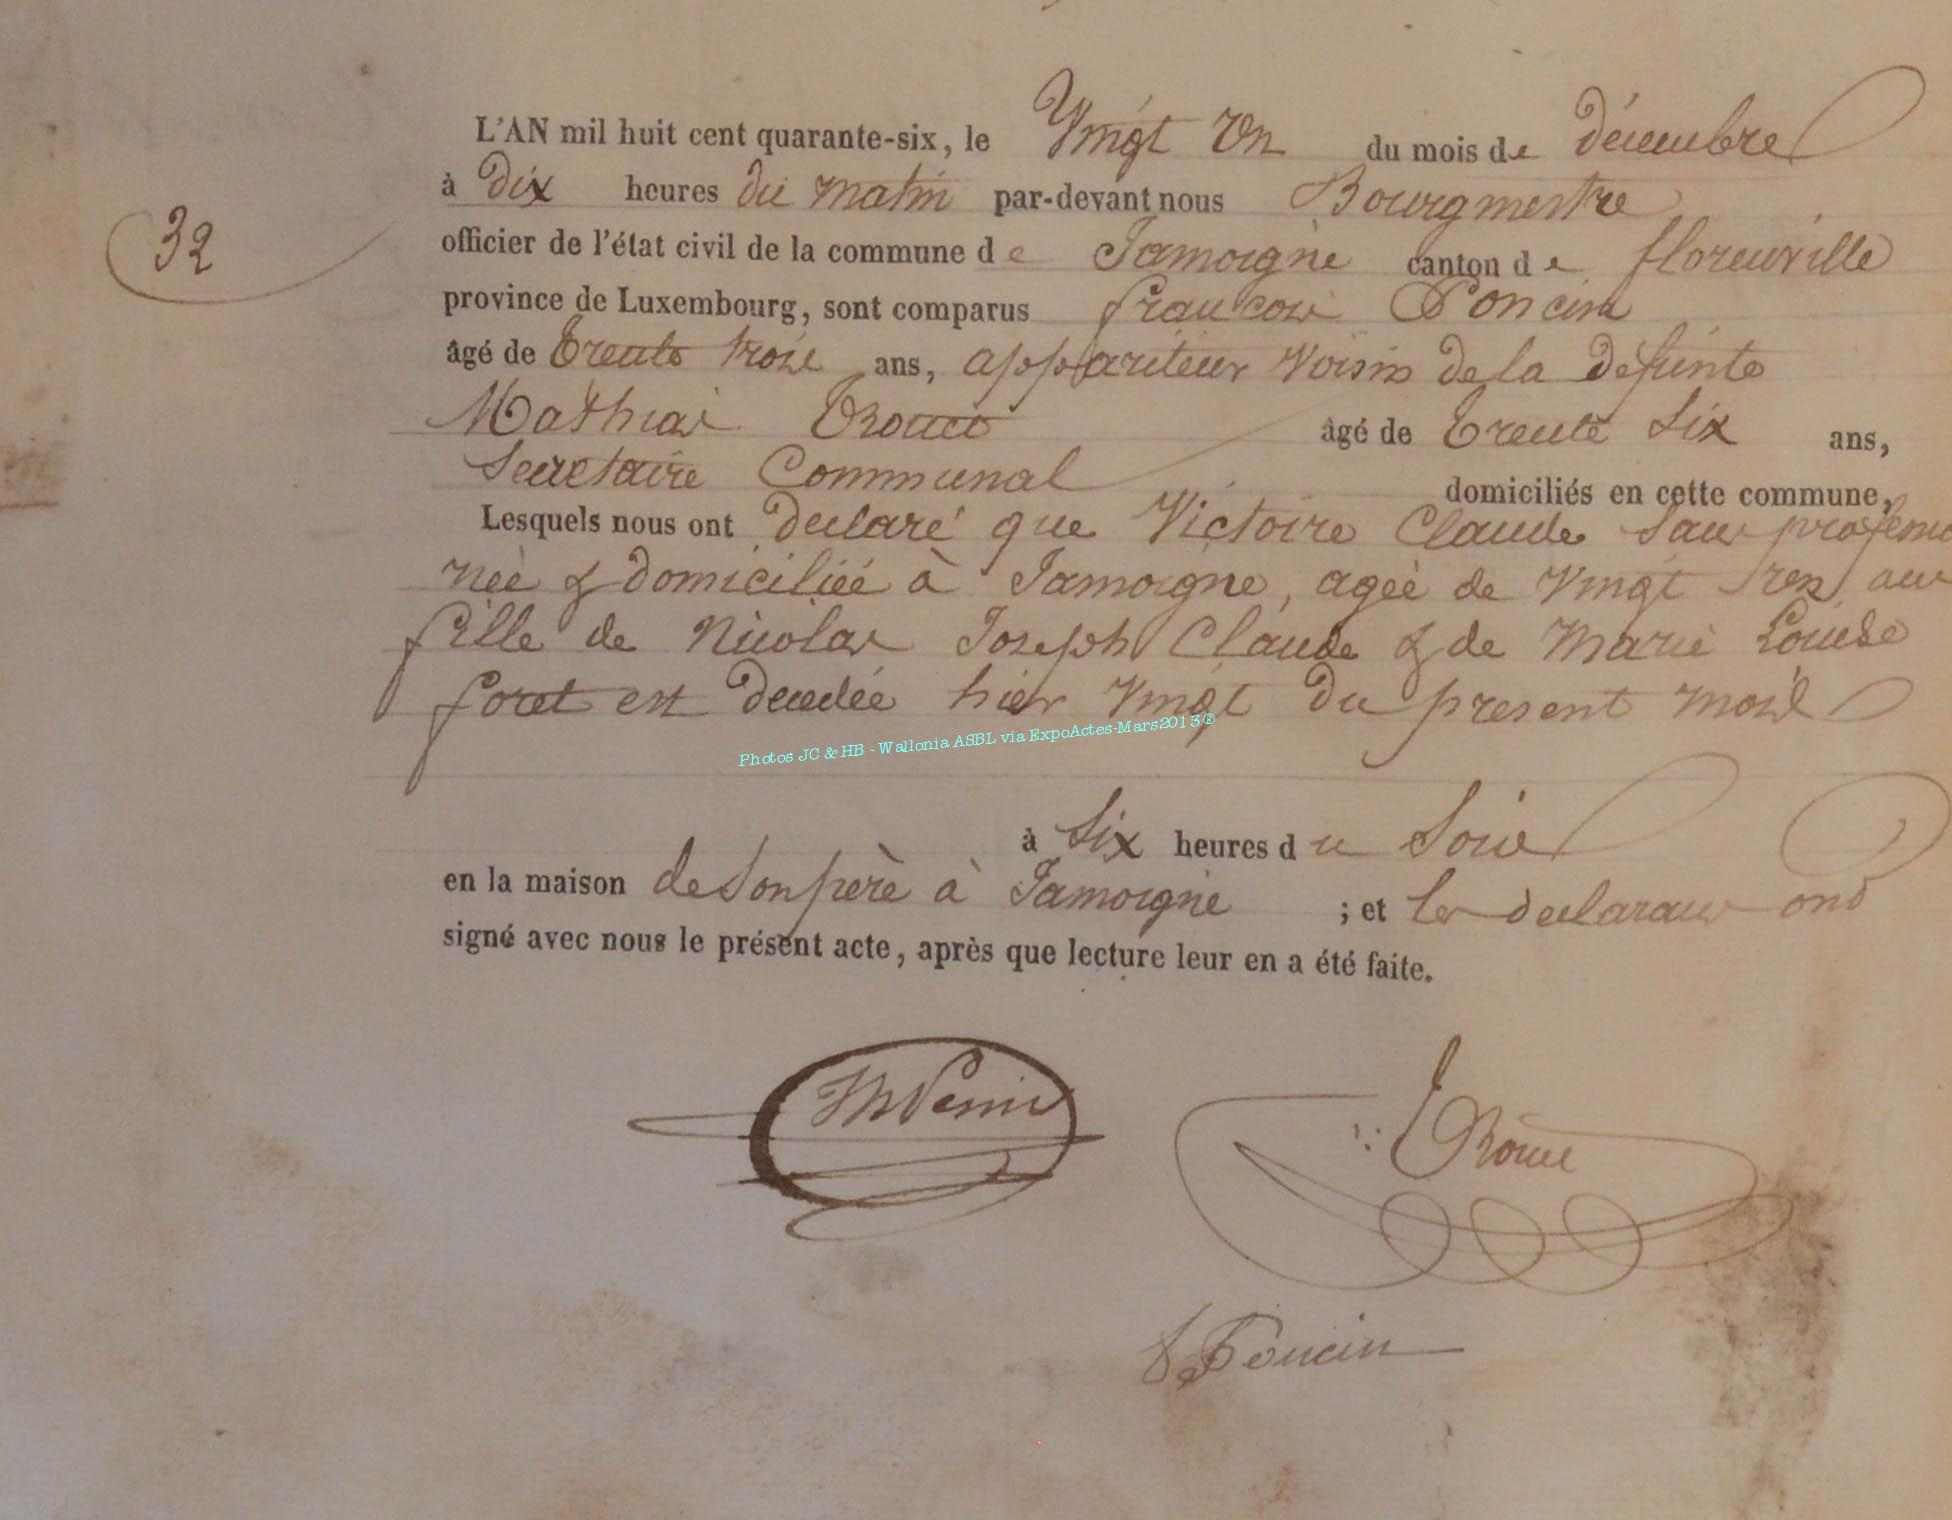 L'AN mil huit cent quarante-six, le Vingt Un du mois de décembre
à dix heures du matin par-devant nous Bourgmestre
32
officier de l'état civil de la commune de Jamoigne canton de florenville
province de Luxembourg, sont comparus francois Poncin
âgé de Trente trois ans, appariteur voisin de la défunte
Mathias
âgé de Trente Six ans,
Secretaire Communal domiciliés en cette commune,
Lesquels nous ont declaré que Victoire Claude Sans
née & domiciliée à Jamoigne, agée de Vingt un ans
fille de Nicolas Joseph Claude & de Marie Louise
foret est decedée hier Vingt du present mois
Photos JC & HB - Wallonia ASBL via ExpoActes-Mars2013®
à Six heures du Soir
en la maison de Son père à Jamoigne ; et les declarans ont
signé avec nous le présent acte, après que lecture leur en a été faite.
Poncin